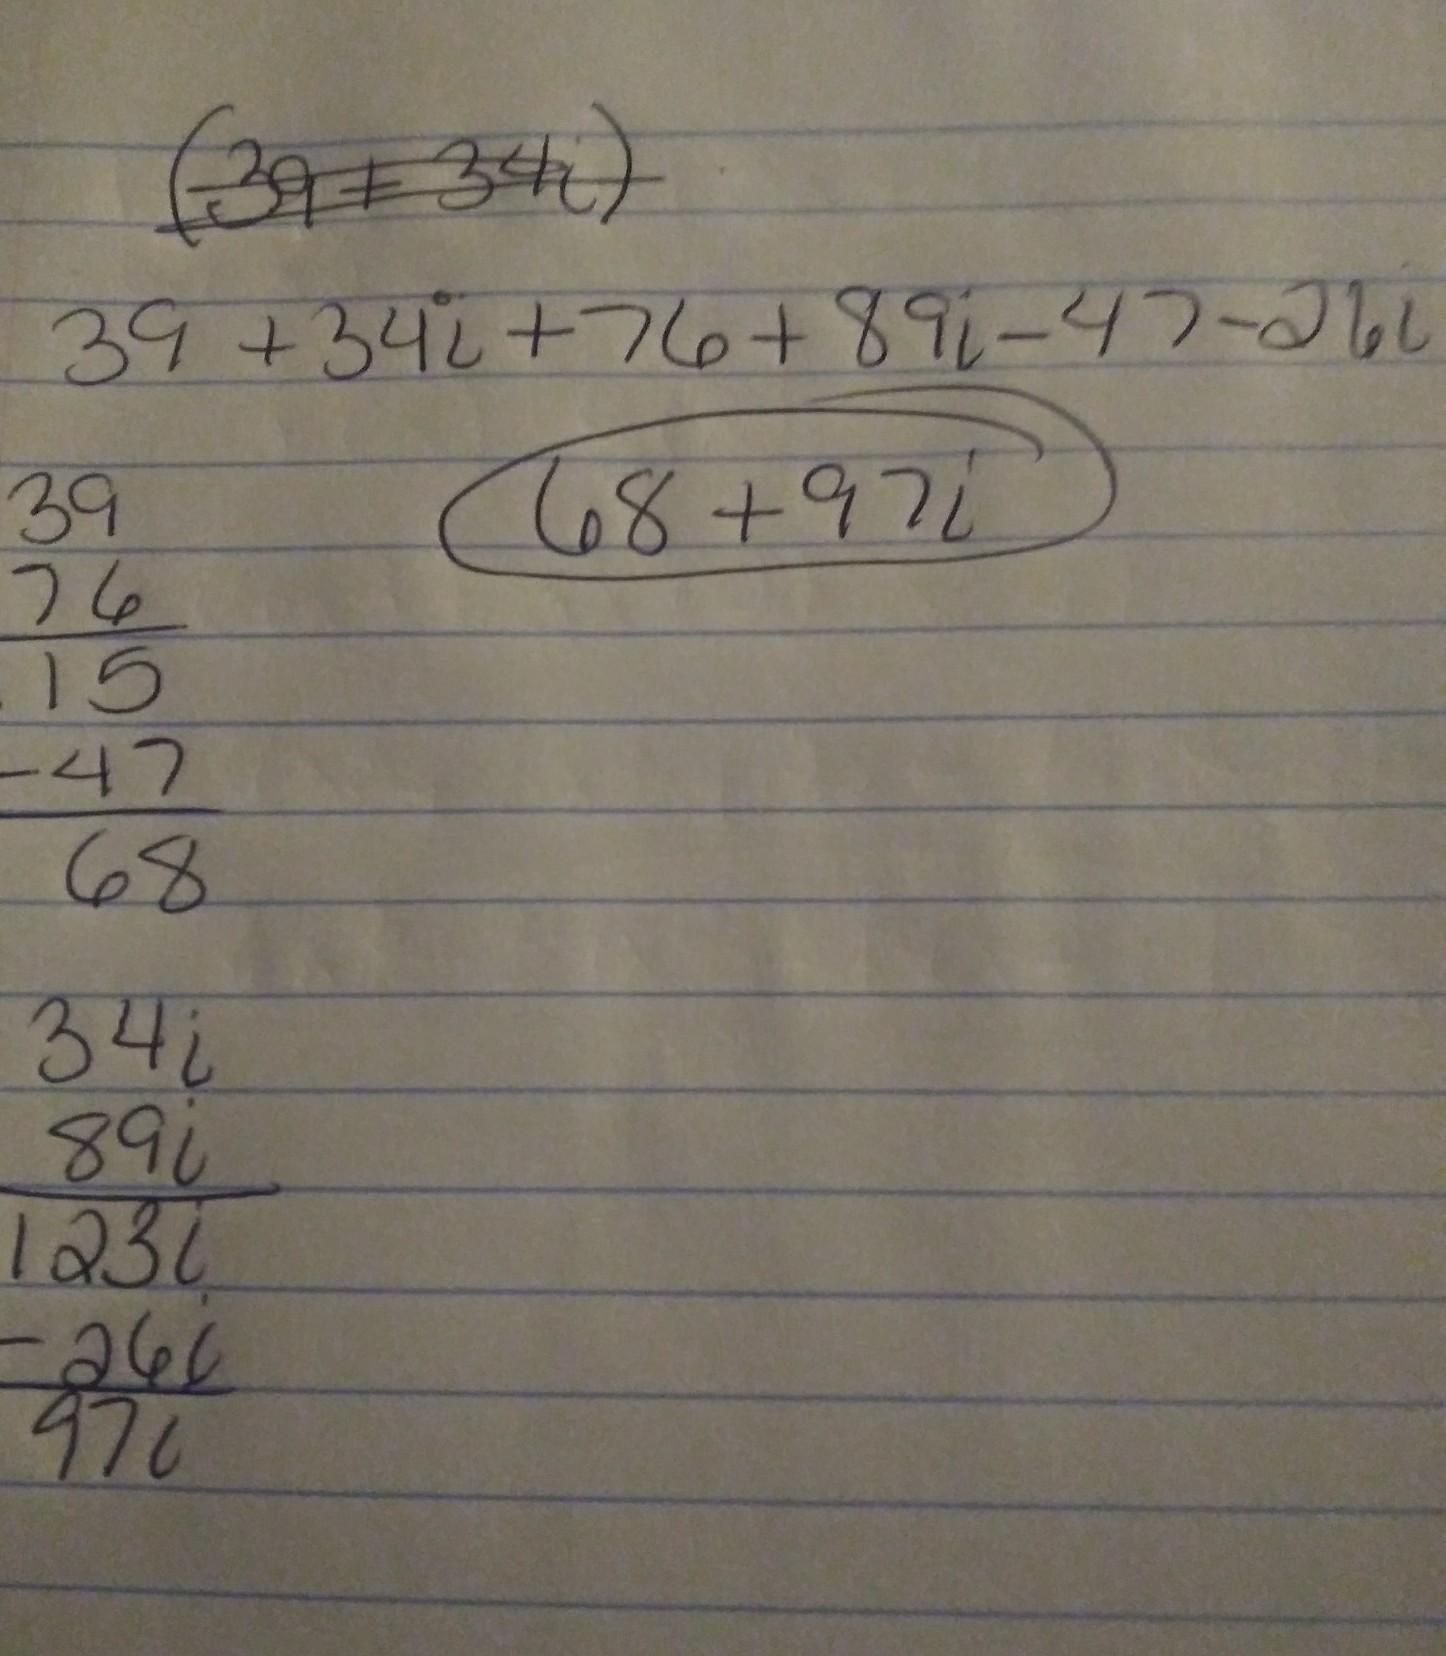 (39 + 34i)
39 + 34i + 76 + 89i - 47 - 26i
68 + 97i
39
76
15
-47
68
34i
89i
123i
-26i
97i